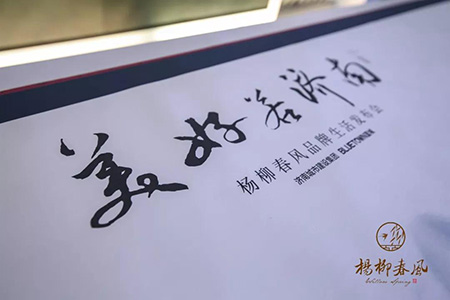 美好若济南
杨柳春风品牌生活发布会
济南城市建设集团 BLUETOWN蓝城
楊柳春風